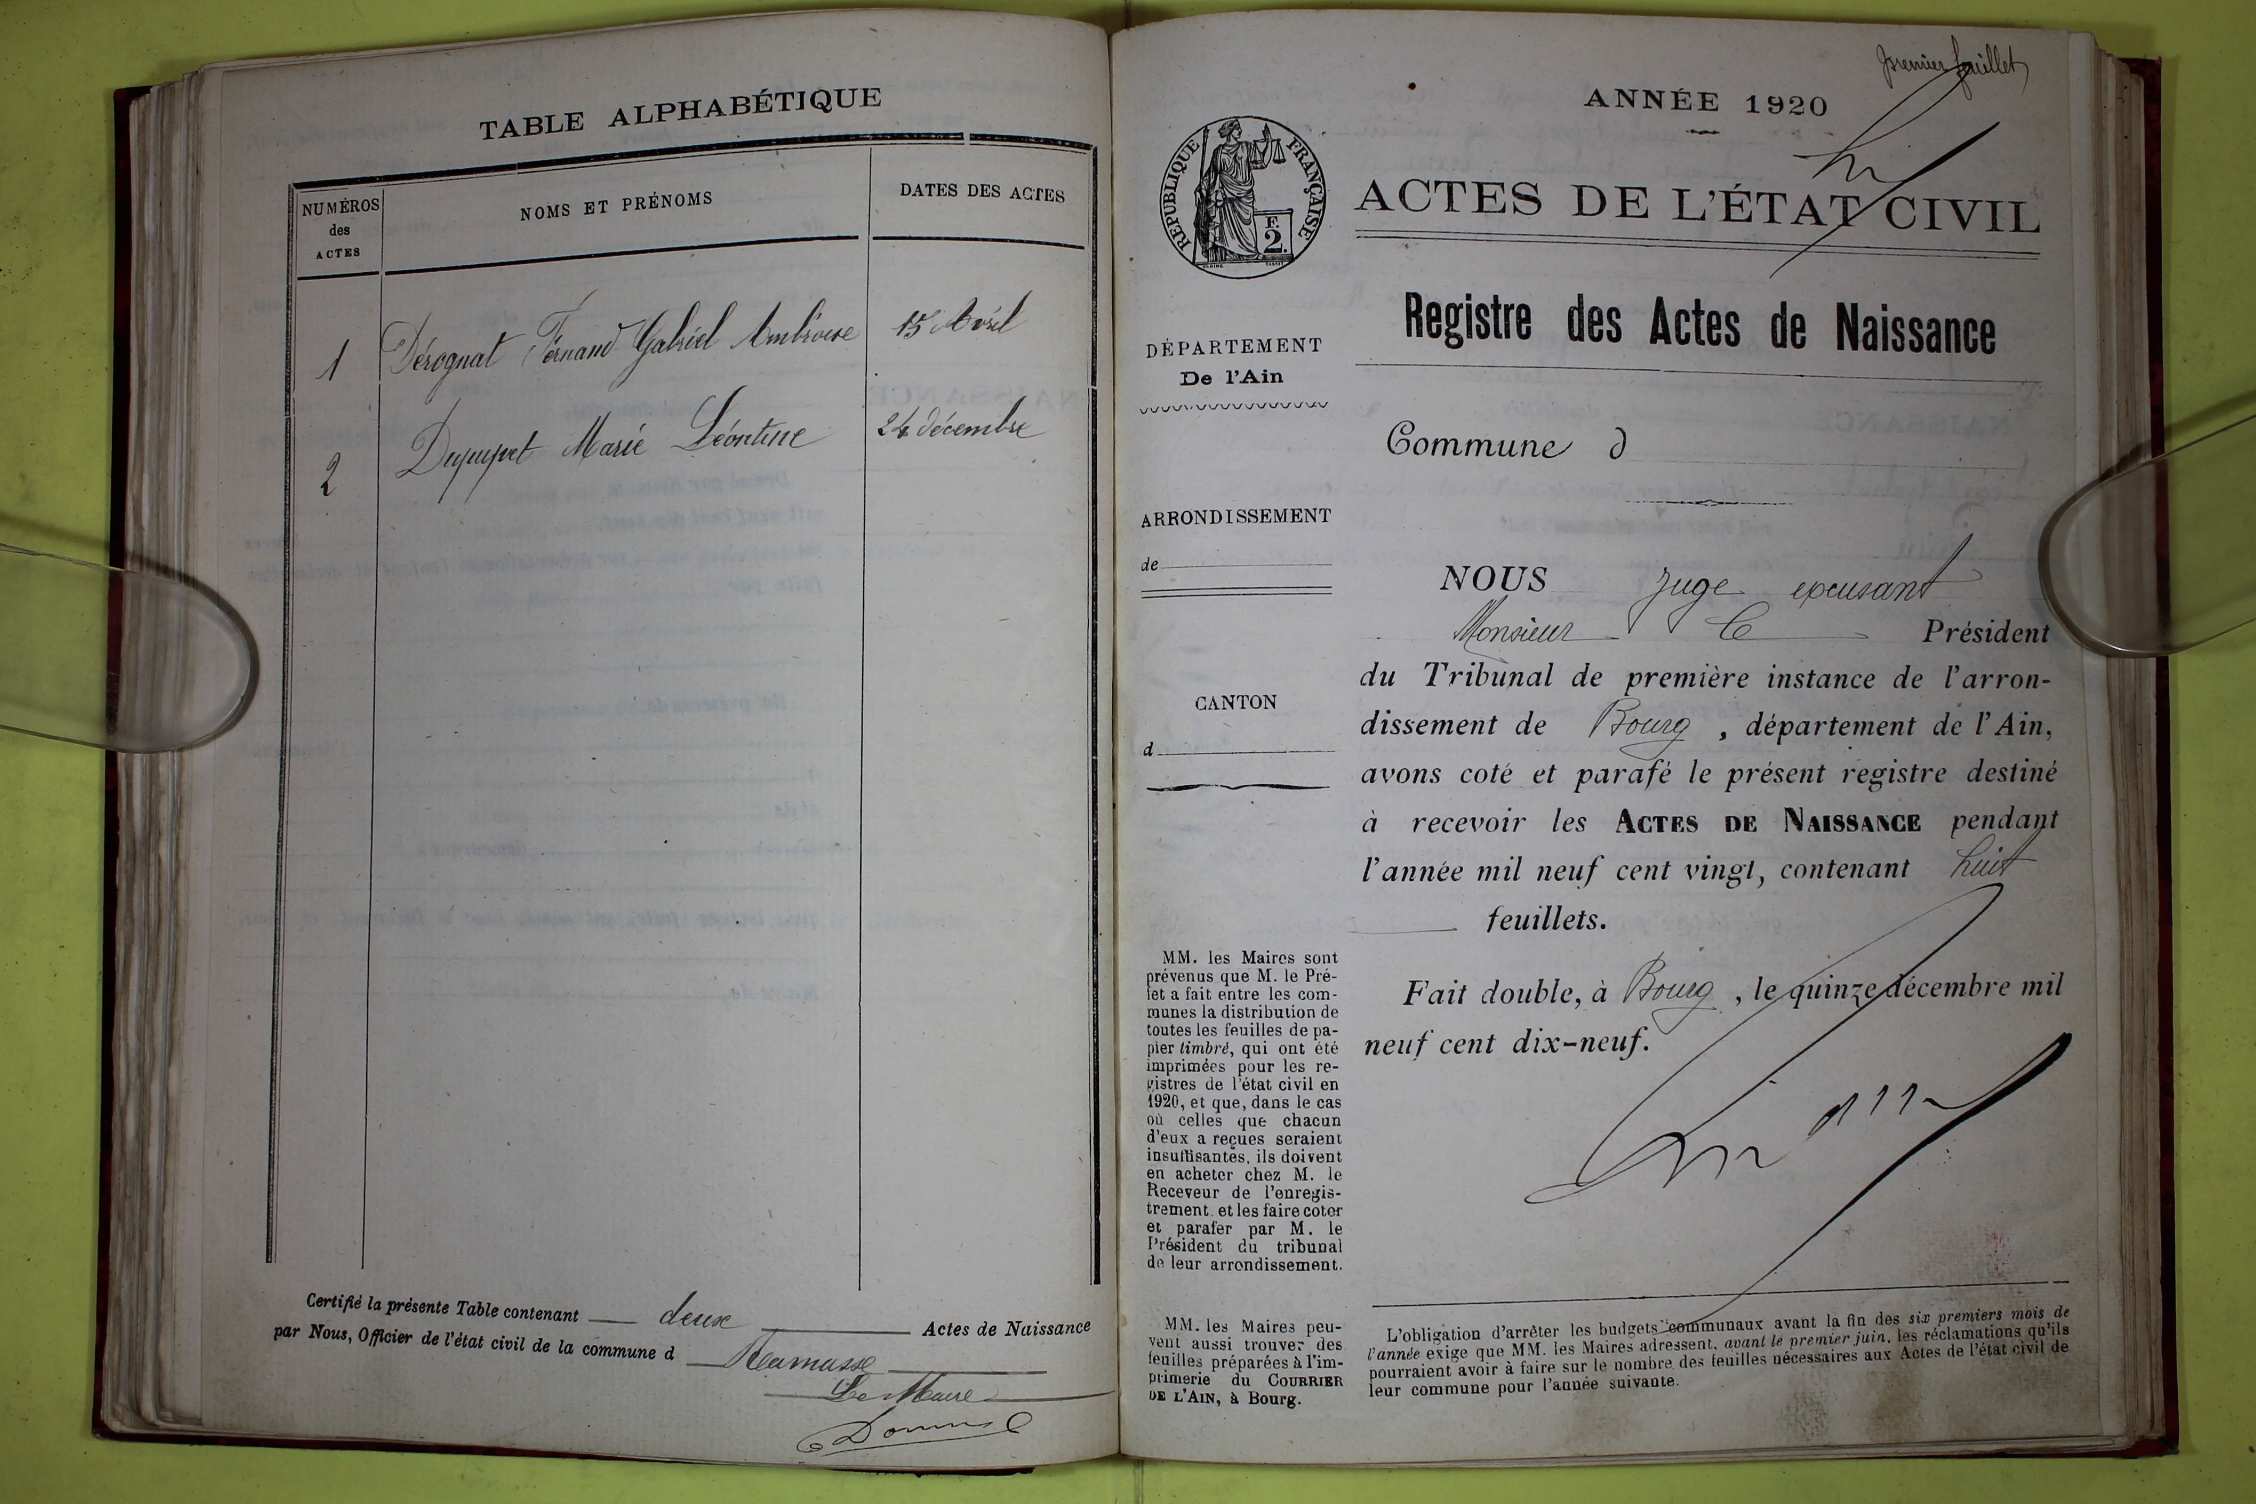 TABLE ALPHABÉTIQUE
NUMÉROS
des
ACTES
NOMS ET PRÉNOMS
DATES DES ACTES
1 Dérognat Fernand Gabriel Ambroise 15 Avril
2 Dupupet Marie Léontine 24 décembre
Certifié la présente Table contenant deux Actes de Naissance
par Nous, Officier de l'état civil de la commune d Ramasse
Le Maire
premier feuillet
ANNÉE 1920
RÉPUBLIQUE FRANÇAISE
F.
2.
ACTES DE L'ÉTAT CIVIL
Registre des Actes de Naissance
DÉPARTEMENT
De l'Ain
Commune d
ARRONDISSEMENT
de
CANTON
d
NOUS juge excusant
Monsieur le Président
du Tribunal de première instance de l'arron-
dissement de Bourg, département de l'Ain,
avons coté et parafé le présent registre destiné
à recevoir les ACTES DE NAISSANCE pendant
l'année mil neuf cent vingt, contenant huit
feuillets.
Fait double, à Bourg, le quinze décembre mil
neuf cent dix-neuf.
MM. les Maires sont
prévenus que M. le Pré-
fet a fait entre les com-
munes la distribution de
toutes les feuilles de pa-
pier timbré, qui ont été
imprimées pour les re-
gistres de l'état civil en
1920, et que, dans le cas
où celles que chacun
d'eux a reçues seraient
insuffisantes, ils doivent
en acheter chez M. le
Receveur de l'enregis-
trement, et les faire coter
et parafer par M. le
Président du tribunal
de leur arrondissement.
MM. les Maires peu-
vent aussi trouver des
feuilles préparées à l'im-
primerie du COURRIER
DE L'AIN, à Bourg.
L'obligation d'arrêter les budgets communaux avant la fin des six premiers mois de
l'année exige que MM. les Maires adressent, avant le premier juin, les réclamations qu'ils
pourraient avoir à faire sur le nombre des feuilles nécessaires aux Actes de l'état civil de
leur commune pour l'année suivante.